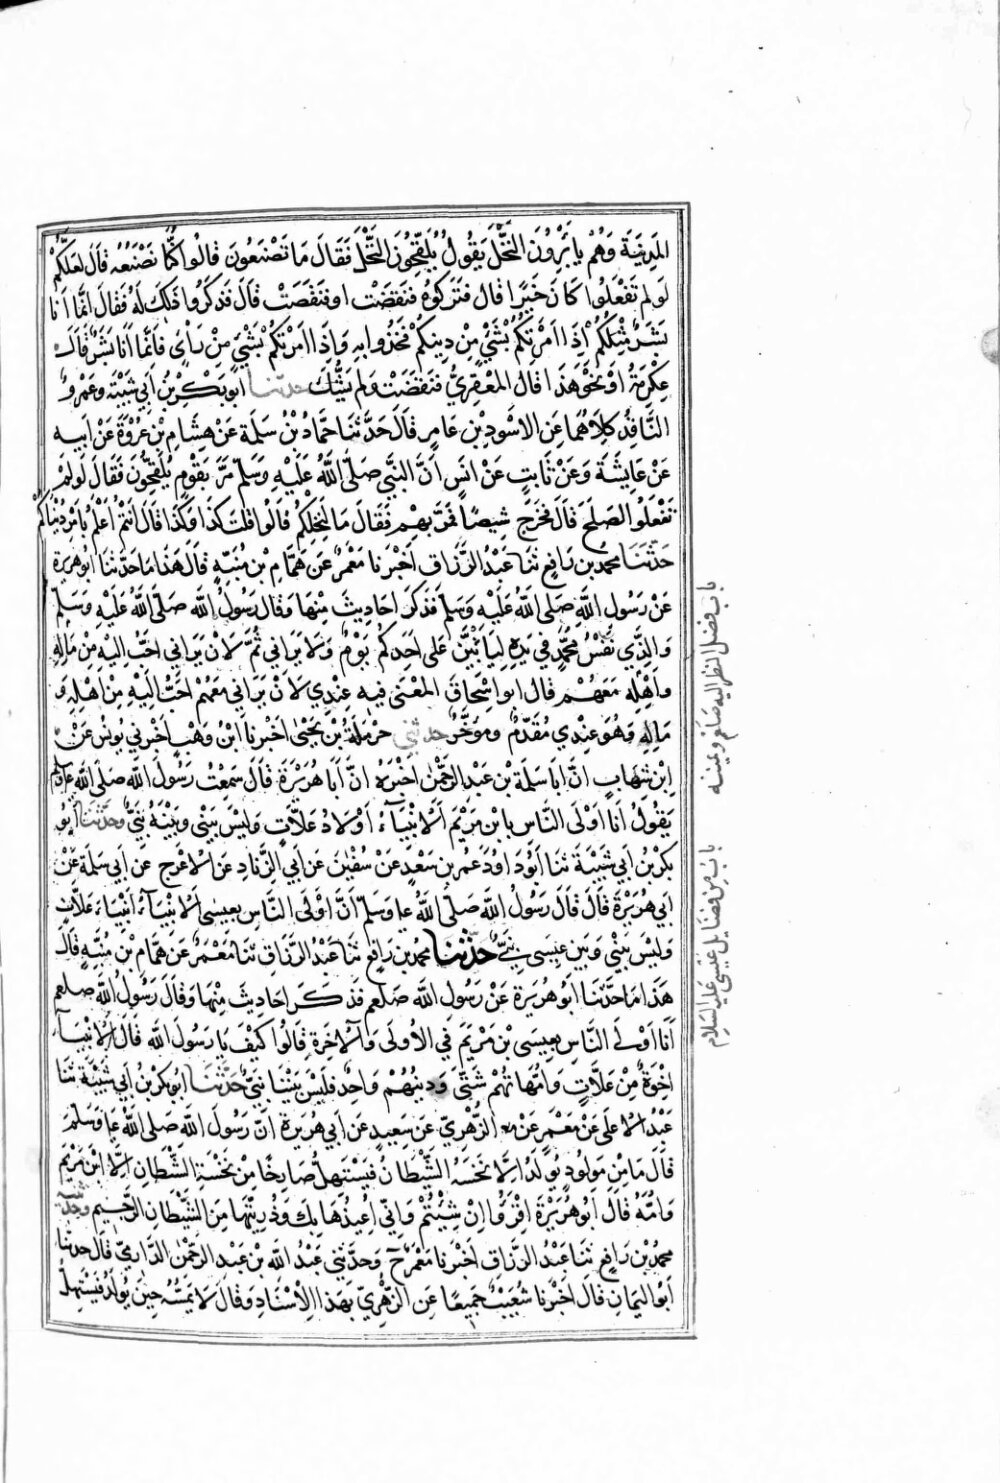 المدينة وهم يابرون النخل يقول يلقحون النخل فقال ما تصنعون قالوا كنا نصنعه قال لعلكم
لو لم تفعلوا كان خيرا قال فتركوه فنفضت او فنقصت قال فذكروا ذلك له فقال انما انا
بشر مثلكم اذا امرتكم بشيء من دينكم فخذوا به واذا امرتكم بشيء من رأي فانما انا بشر قال
عكرمة او نحو هذا قال المعقري فنفضت ولم يشك حدثنا ابو بكر بن ابي شيبة وعمرو
الناقد كلاهما عن الاسود بن عامر قال حدثنا حماد بن سلمة عن هشام بن عروة عن ابيه
عن عايشة وعن ثابت عن انس ان النبي صلى الله عليه وسلم مر بقوم يلقحون فقال لو لم
تفعلوا لصلح قال فخرج شيصا فمر بهم فقال ما لنخلكم قالوا قلت كذا وكذا قال انتم اعلم بامر دنياكم
حدثنا محمد بن رافع ثنا عبد الرزاق اخبرنا معمر عن همام بن منبه قال هذا ما حدثنا ابو هريرة
عن رسول الله صلى الله عليه وسلم فذكر احاديث منها وقال رسول الله صلى الله عليه وسلم
والذي نفس محمد في يده لياتين على احدكم يوم ولا يراني ثم لان يراني احب اليه من ماله
واهله معهم قال ابو اسحاق المعنى فيه عندي لان يراني معهم احب اليه من اهله و
ماله وهو عندي مقدم ومؤخر حدثني حرملة بن يحيى اخبرنا ابن وهب اخبرني يونس عن
ابن شهاب ان ابا سلمة بن عبد الرحمن اخبره ان ابا هريرة قال سمعت رسول الله صلى الله عليه وسلم
يقول انا اولى الناس بابن مريم الانبياء اولاد علات وليس بيني وبينه نبي وحدثنا ابو
بكر بن ابي شيبة ثنا ابو داود عمر بن سعد عن سفين عن ابي الزناد عن الاعرج عن ابي سلمة عن
ابي هريرة قال قال رسول الله صلى الله عليه وسلم انا اولى الناس بعيسى الانبياء ابنياء علات
وليس بيني وبين عيسى نبي حدثنا محمد بن رافع ثنا عبد الرزاق ثنا معمر عن همام بن منبه قال
هذا ما حدثنا ابو هريرة عن رسول الله صلعم فذكر احاديث منها وقال رسول الله صلعم
انا اولى الناس بعيسى بن مريم في الاولى والاخرة قالوا كيف يا رسول الله قال الانبياء
اخوة من علات وامهاتهم شتى ودينهم واحد فليس بيننا نبي حدثنا ابو بكر بن ابي شيبة ثنا
عبد الاعلى عن معمر عن الزهري عن سعيد عن ابي هريرة ان رسول الله صلى الله عليه وسلم
قال ما من مولود يولد الا نخسه الشيطان فيستهل صارخا من نخسة الشطان الا ابن مريم
وامه قال ابو هريرة اقرؤا ان شيتم واني اعيذها بك وذريتها من الشيطان الرجيم وحدثنيه
محمد بن رافع ثنا عبد الرزاق اخبرنا معمر ح وحدثني عبد الله بن عبد الرحمن الدارمي قال حدثنا
ابو اليمان قال اخبرنا شعيب جميعا عن الزهري بهذا الاسناد وقال لا يمسه حين يولد فيستهل
باب فضل النظر اليه صلعم وتمنيه
باب من فضايل عيسى عليه السلام